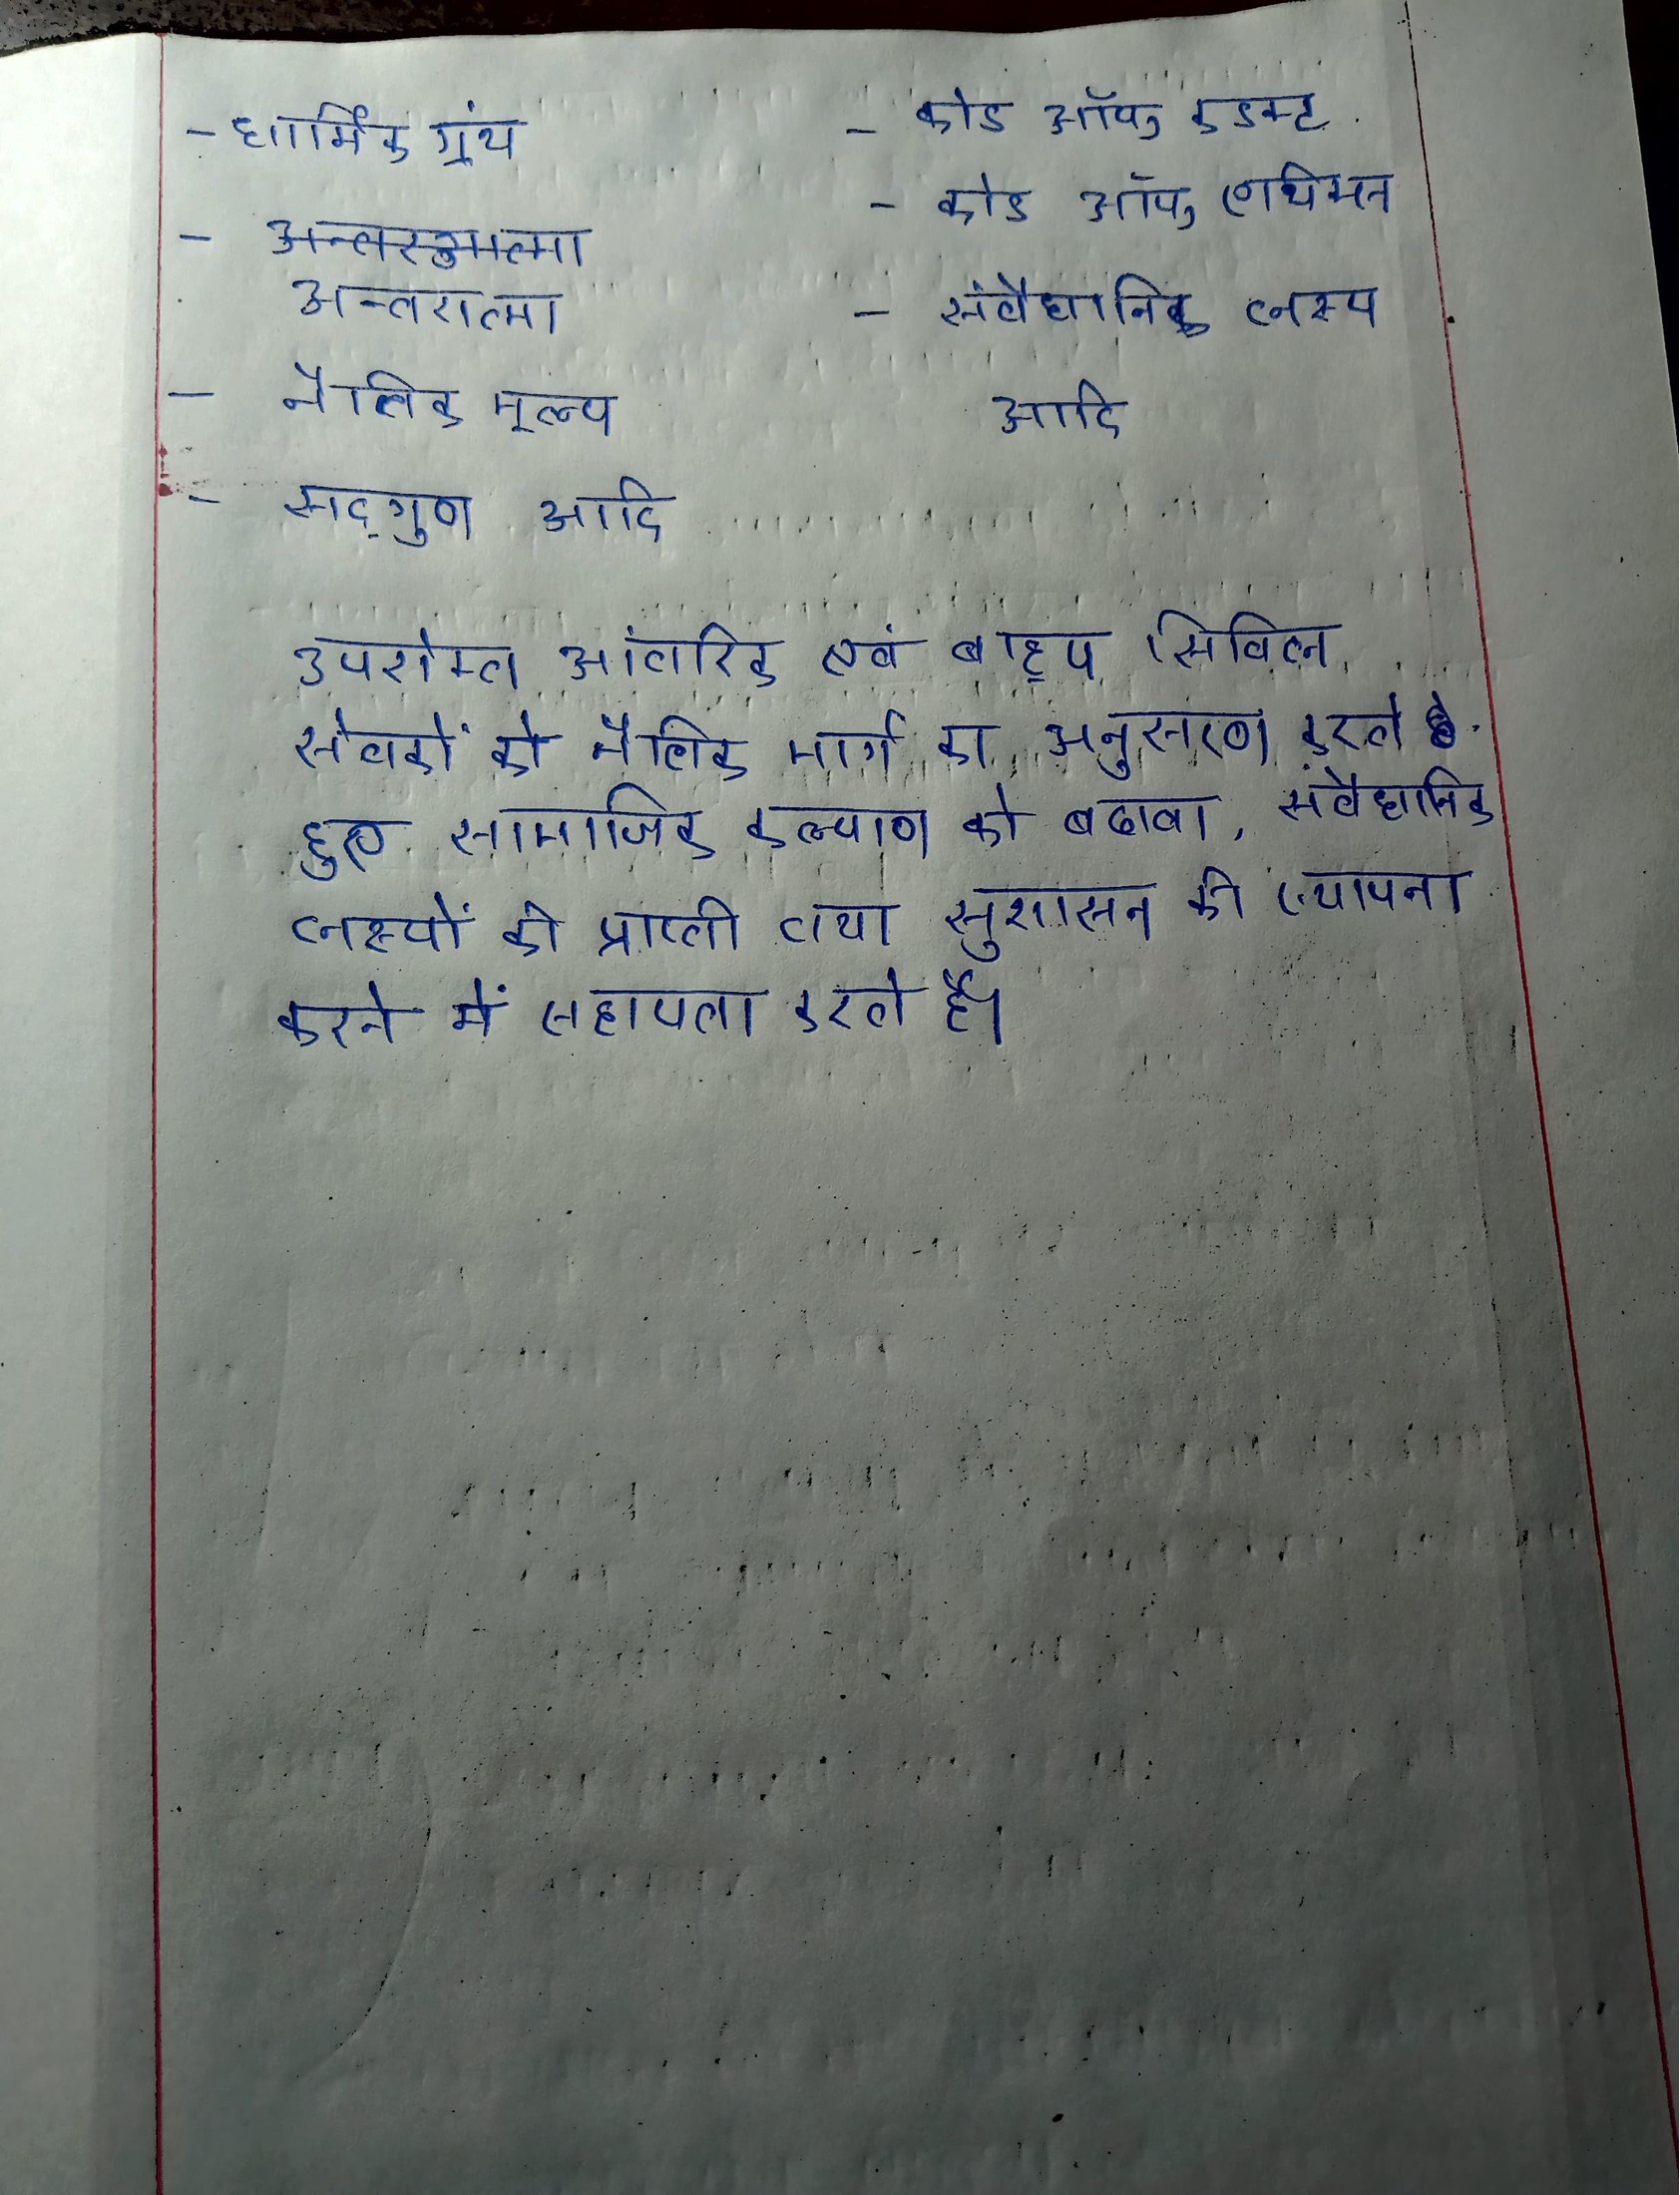 - धार्मिक ग्रंथ
- अन्तरात्मा
- नैतिक मूल्य
- सद्गुण आदि
- कोड ऑफ कंडक्ट
- कोड ऑफ एथिक्स
- संवैधानिक लक्ष्य
आदि
उपरोक्त आंतरिक एवं बाह्य सिविल
सेवकों को नैतिक मार्ग का अनुसरण करते
हुए सामाजिक कल्याण को बढावा, संवैधानिक
लक्ष्यों की प्राप्ती तथा सुशासन की स्थापना
करने में सहायता करते हैं।